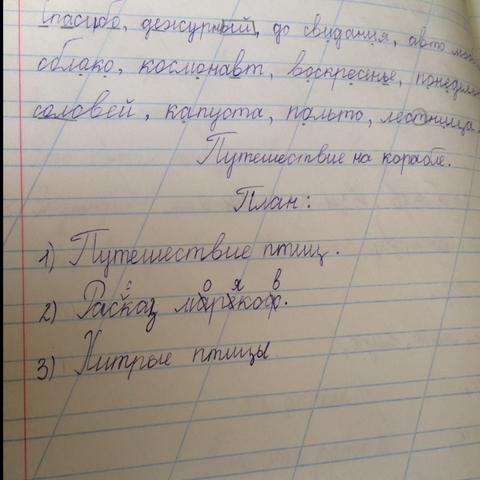 Спасибо, дежурный, до свидания, авто
облако, космонавт, воскресенье, понедель
соловей, капуста, пальто, лестница.
Путешествие на корабле.
План:
1) Путешествие птиц.
с о я в
2) Расказ марякоф.
3) Хитрые птицы